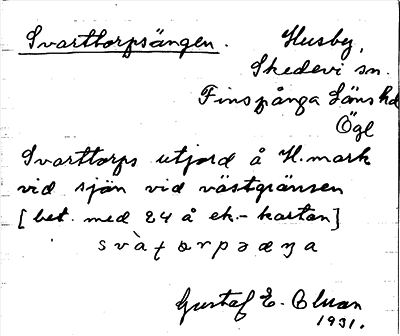 Svarttorpsängen.
Husby,
Skedevi sn.
Finspånga Läns hd
Ögl
Svarttorps utjord å H.mark
vid sjön vid västgränsen
[bet. med 24 å ek.-kartan]
Gustaf E.
1931.